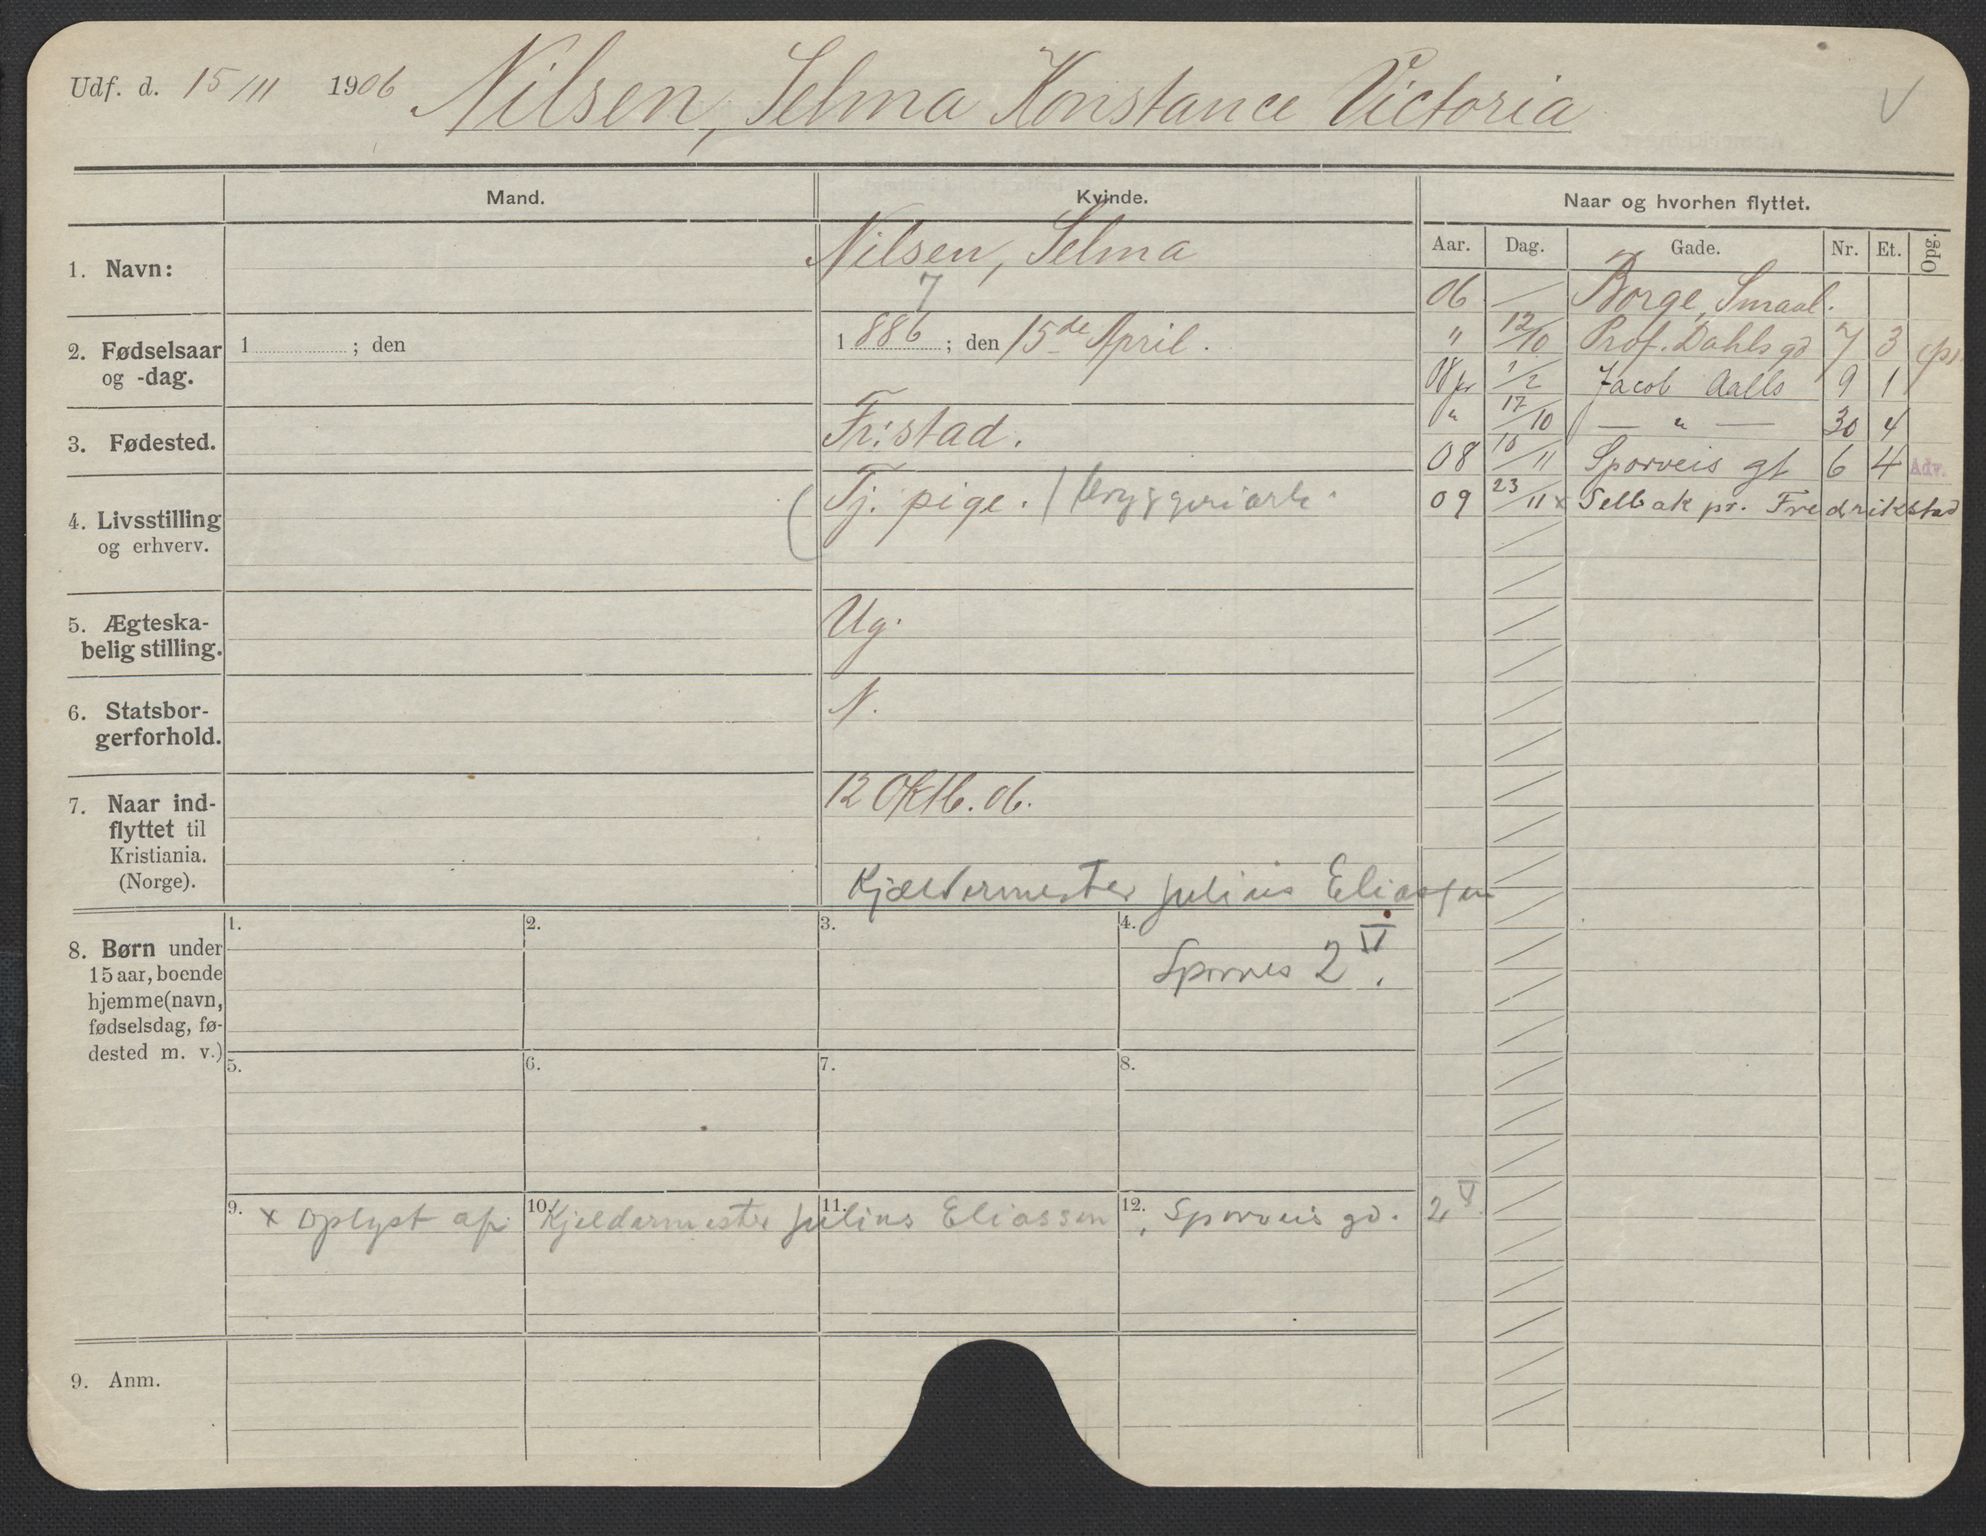 Udf. d. 15/III 1906 Nilsen, Selma Konstance Victoria V
Mand. Kvinde. Naar og hvorhen flyttet.
Aar. Dag. Gade. Nr. Et. Opg.
1. Navn: Nilsen, Selma
7
2. Fødselsaar og -dag. 1 ; den 1 886 ; den 15de April.
3. Fødested. Fr:stad.
4. Livsstilling og erhverv. ( Tj. pige. / bryggeriarb.
5. Ægteska-
belig stilling. Ug.
6. Statsbor-
gerforhold. N.
7. Naar ind-
flyttet til
Kristiania.
(Norge). 12 Oktb. 06.
Kjældermester Julius Eliassen
06 — Borge, Smaal.
" 12/10 Prof. Dahls gd 7 3
08 1/2 Jacob Aalls 9 1
" 17/10 — " — 30 4
08 10/11 Sporveis gt 6 4 Adv.
09 23/11 x Selbak pr. Fredrikstad
8. Børn under
15 aar, boende
hjemme (navn,
fødselsdag, fø-
dested m. v.)
1. 2. 3. 4.
2 V.
5. 6. 7. 8.
9. 10. 11. 12.
x Oplyst af Kjeldermester Julius Eliassen, Sporveis gd. 2 V.
9. Anm.